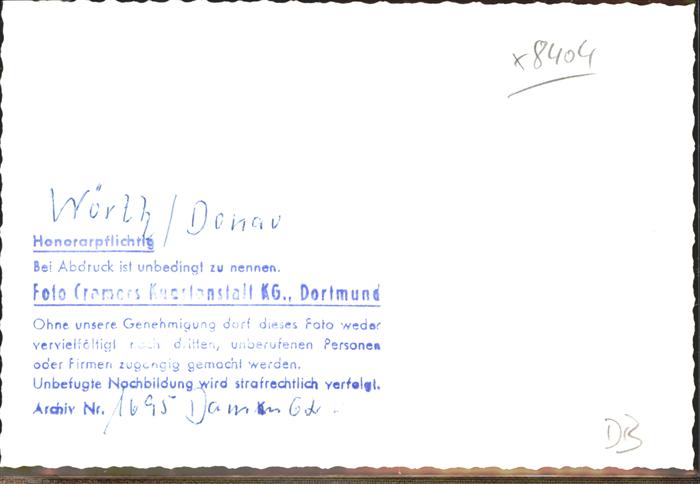 x8404
Wörth/Donau
Honorarpflichtig
Bei Abdruck ist unbedingt zu nennen.
Foto Cramers Kunstanstalt KG., Dortmund
Ohne unsere Genehmigung darf dieses Foto weder
vervielfältigt noch dritten, unberufenen Personen
oder Firmen zugängig gemacht werden.
Unbefugte Nachbildung wird strafrechtlich verfolgt.
Archiv Nr. 1695
DB